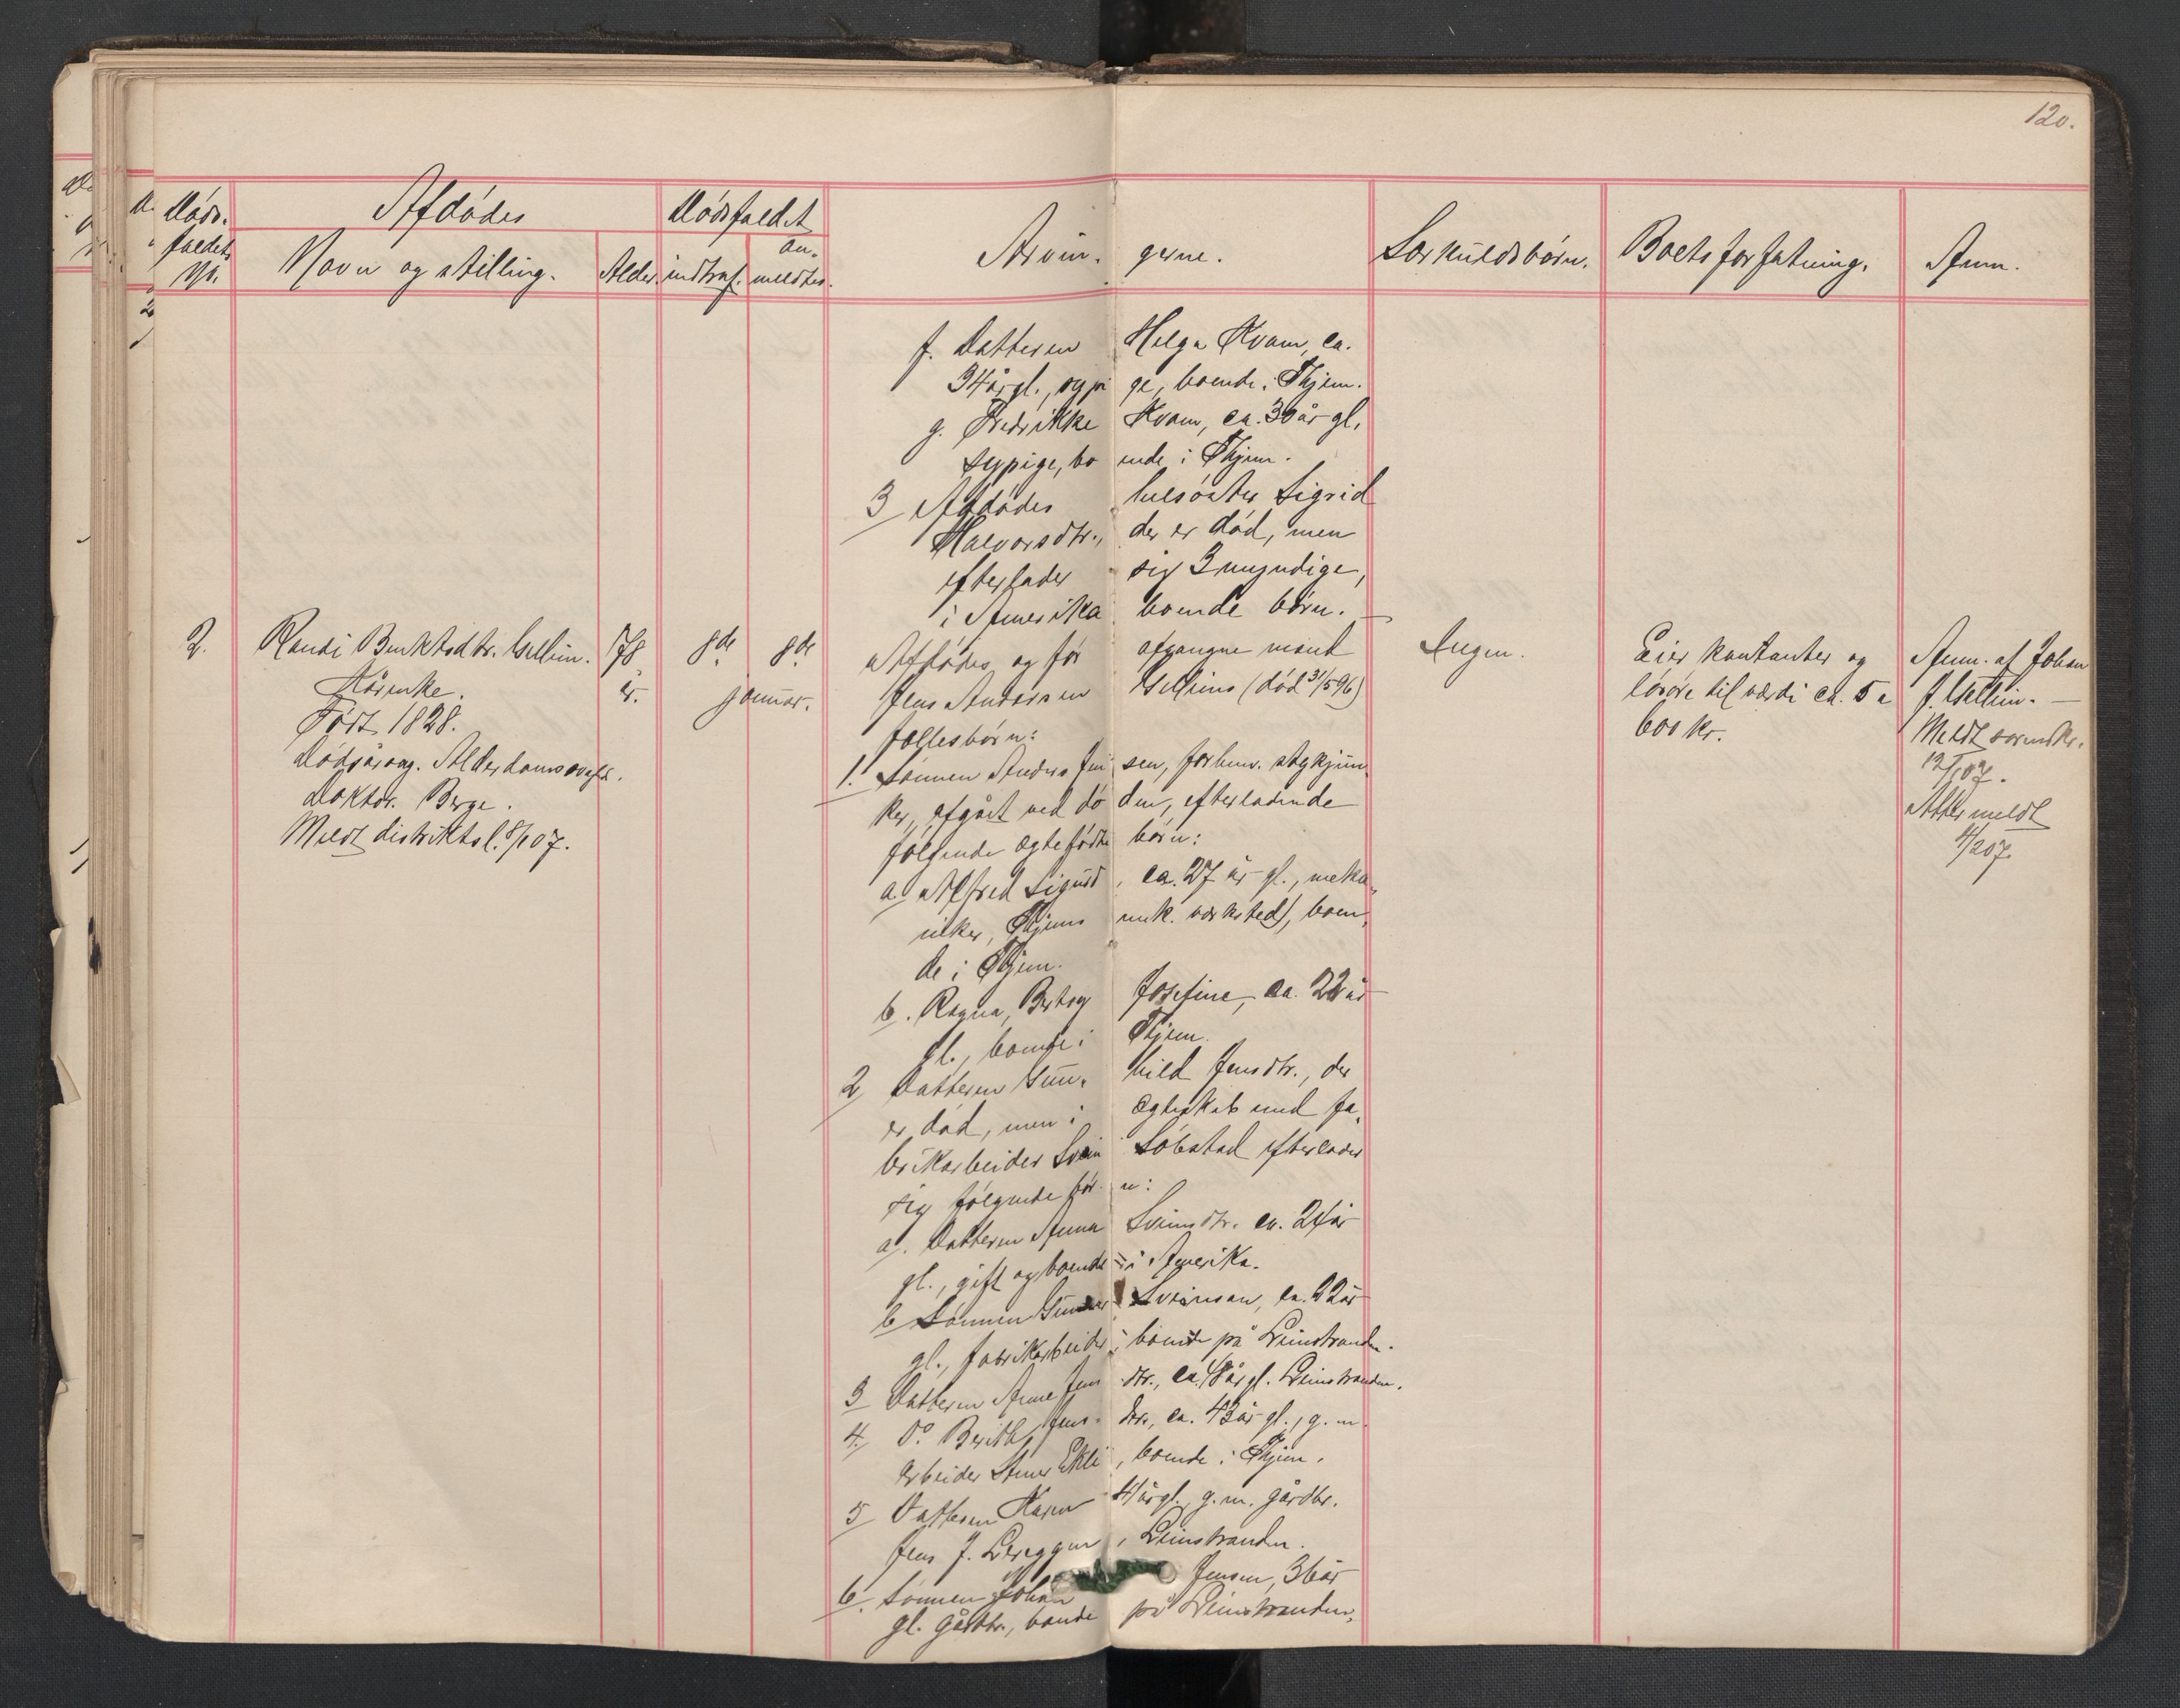 120.
Døds-
faldets
No.
Afdødes
Navn og stilling.
Alder.
Dødsfaldet
indtraf.
an-
meldtes.
Arvin- gerne.
Særkuldsbørn.
Boets forfatning.
Anm.
f. Datteren Helga Kvam, ca.
34 år gl., sypi ge, boende i Thjem.
g. Fredrikke Kvam, ca. 30 år gl.
sypige, bo ende i Thjem.
3 Afdødes helsøster Sigrid
Halvorsdtr., der er død, men
efterlader sig 3 myndige,
i Amerika boende børn. —
2.
Randi Benktsdtr. Hellein.
Kårenke.
Født 1828.
Dødsårsag. Alderdomssvagh.
Doktor. Berge.
Meldt distriktsl. 8/1 07.
78
år.
8de 8de
januar.
Afdødes og før afgangne mand
Jens Andersen (død 31/5 96)
fællesbørn:
1. Sønnen Anders Jen sen, forhenv. stykjun-
ker, afgået ved dø den, efterladende
følgende ægtefødte børn:
a. Alfred Sigurd, ca. 27 år gl., meka-
niker, Thjems mek. værksted, boen-
de i Thjem.
b. Ragna, Bertog Josefine, ca. 22 år
gl., boende i Thjem.
2 Datteren Gun- hild Jensdtr., der
er død, men i ægteskab med fa-
brikarbeider Svein Søbstad efterlader
sig følgende bør n:
a. Datteren Anna Sveinsdtr. ca. 24 år
gl., gift og boende i Amerika.
b Sønnen Gunnar Sveinsen, ca. 22 år
gl., fabrikarbeider, boende på Leinstranden.
3 Datteren Anne Jens dtr., ca. 48 år gl. Leinstranden.
4. Do. Berith Jens- dtr., ca. 43 år gl., g. m.
arbeider Arnes Ekli, boende i Thjem.
5 Datteren Karen 41 år gl., g. m. gårdbr.
Jens J. Lereggen, Leinstranden.
6. Sønnen Johan Jensen, 36 år
gl. gårdbr., boende på Leinstranden.
Ingen.
Eier kontanter og
løsøre til værdi ca. 5 a
600 kr.
Anm. af Johan
J. Hellein. —
Meldt sorenskr.
12/1 07.
Atter meldt
4/2 07.